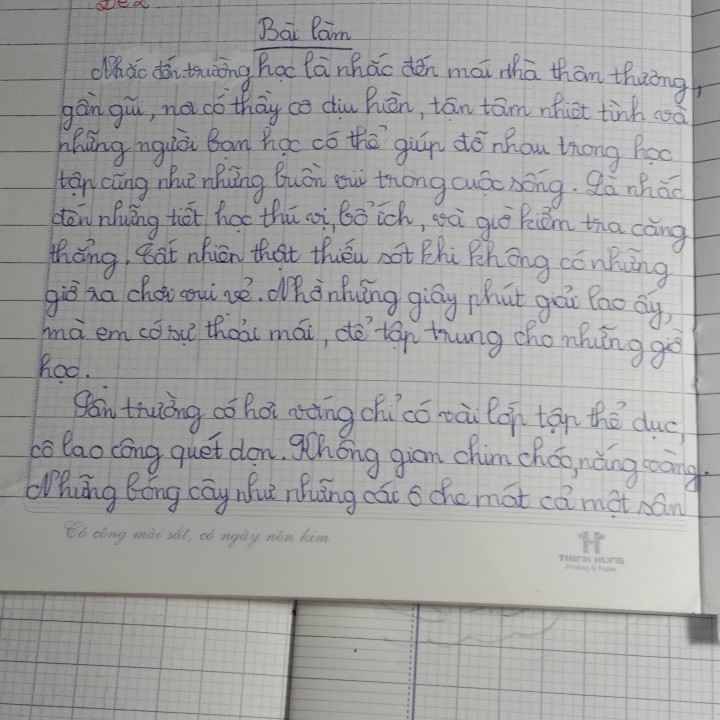 Bài làm
Nhắc đến trường học là nhắc đến mái nhà thân thương,
gần gũi, nơi có thầy cô dịu hiền, tận tâm nhiệt tình và
những người bạn học có thể giúp đỡ nhau trong học
tập cũng như những buồn vui trong cuộc sống. Là nhắc
đến những tiết học thú vị, bổ ích, và giờ kiểm tra căng
thẳng. Tất nhiên thật thiếu sót khi không có những
giờ ra chơi vui vẻ. Nhờ những giây phút giải lao ấy,
mà em có sự thoải mái, để tập trung cho những giờ
học.
Sân trường có hơi vắng chỉ có vài lớp tập thể dục,
cô lao công quét dọn. Không gian chim chóc, nắng vàng.
Những bóng cây như những cái ô che mát cả một sân
Có công mài sắt, có ngày nên kim
H